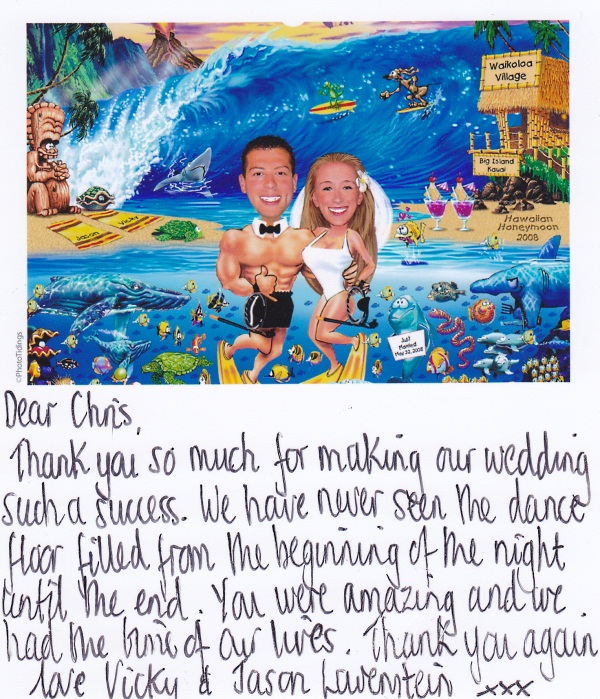 Waikoloa
Village
Big Island
Kauai
Hawaiian
Honeymoon
2008
Jason
Vicky
Just
Married
May 22, 2008
©PhotoTidings
Dear Chris,
Thank you so much for making our wedding
such a success. We have never seen the dance
floor filled from the beginning of the night
until the end. You were amazing and we
had the time of our lives. Thank you again
love Vicky & Jason Lowenstein xxx